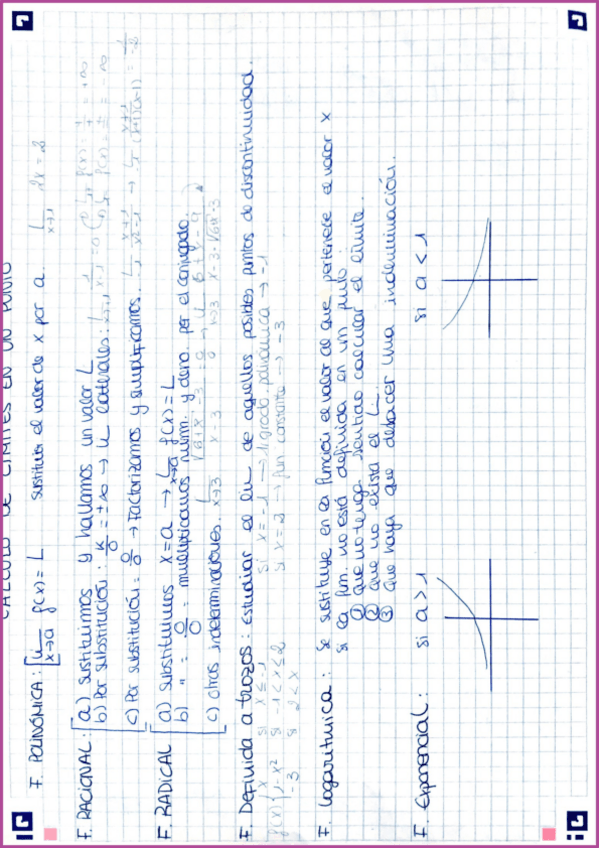 CÁLCULO DE LÍMITES EN UN PUNTO
F. POLINÓMICA: Lim x→a f(x) = L sustituir el valor de x por a. L x→1 2x = 2
F. RACIONAL: a) sustituimos y hallamos un valor L
b) Por substitución: K/0 = ±∞ → L laterales:
c) Por substitución: 0/0 → Factorizamos y simplificamos.
F. RADICAL a) substituimos x = a → L x→a f(x) = L
b) " = 0/0 = multiplicamos num. y deno. por el conjugado.
c) otras indeterminaciones. L x→3
F. Definida a trozos: Estudiar el lim de aquellos posibles puntos de discontinuidad.
f(x) { x si x ≤ -1 si x = -1 → 1 grado, polinómica → -1
1-x² si -1 < x ≤ 2 si x = 2 → fun constante → -3
-3 si 2 < x
F. logarítmica: Se sustituye en la función el valor al que pertenece el valor x
si la fun. no está definida en un punto:
① que no tenga sentido calcular el límite.
② que no exista el L.
③ que haya que deshacer una indeterminación.
F. Exponencial: si a > 1 si a < 1